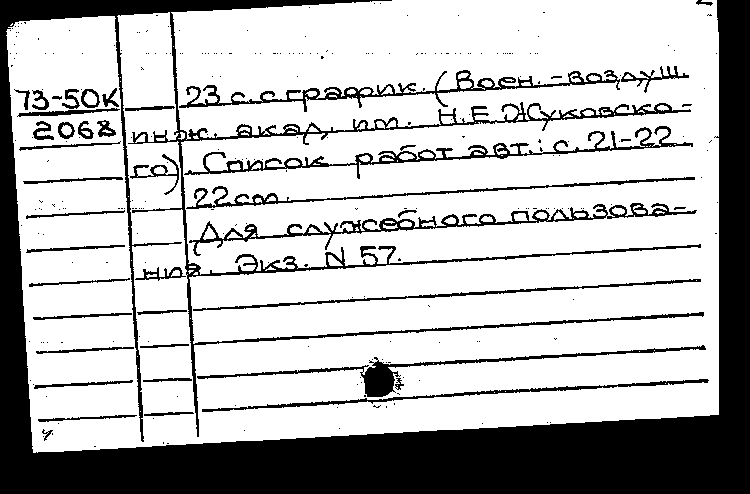 73-50К 23 с. с график. (Воен.-воздуш.
2068 инж. акад. им. Н.Е.Жуковско-
го). Список работ авт.: с. 21-22.
22 см.
Для служебного пользова-
ния. Экз. N 57.